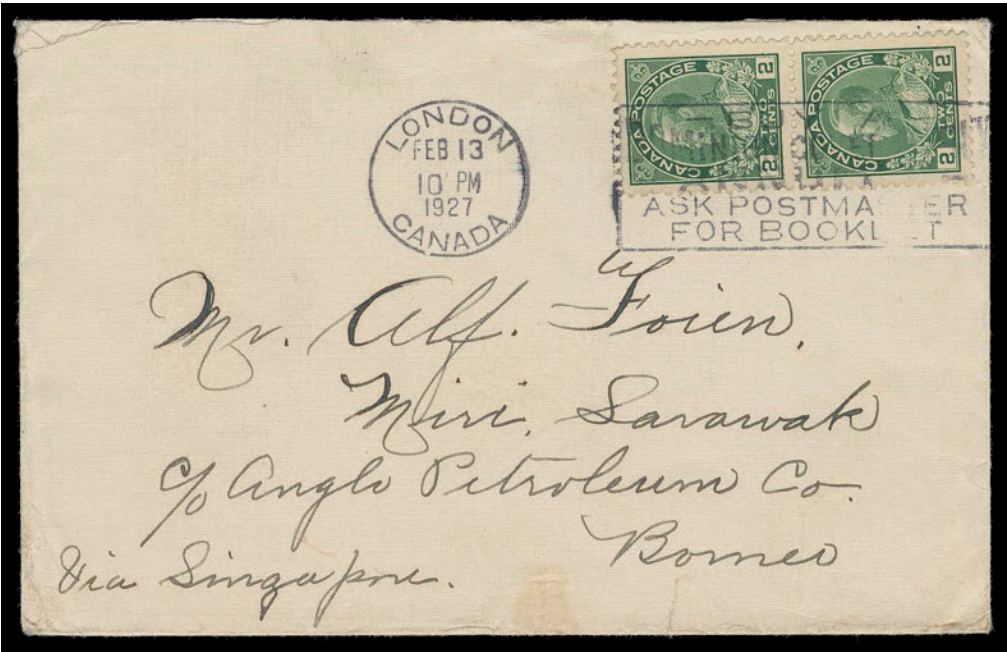 CANADA POSTAGE
2 TWO CENTS 2
CANADA POSTAGE
2 TWO CENTS 2
LONDON
FEB 13
10 PM
1927
CANADA
ASK POSTMA ER
FOR BOOKL T
Mr. Alf. Foien,
Miri, Sarawak
c/o Anglo Petroleum Co.
Borneo
Via Singapore.